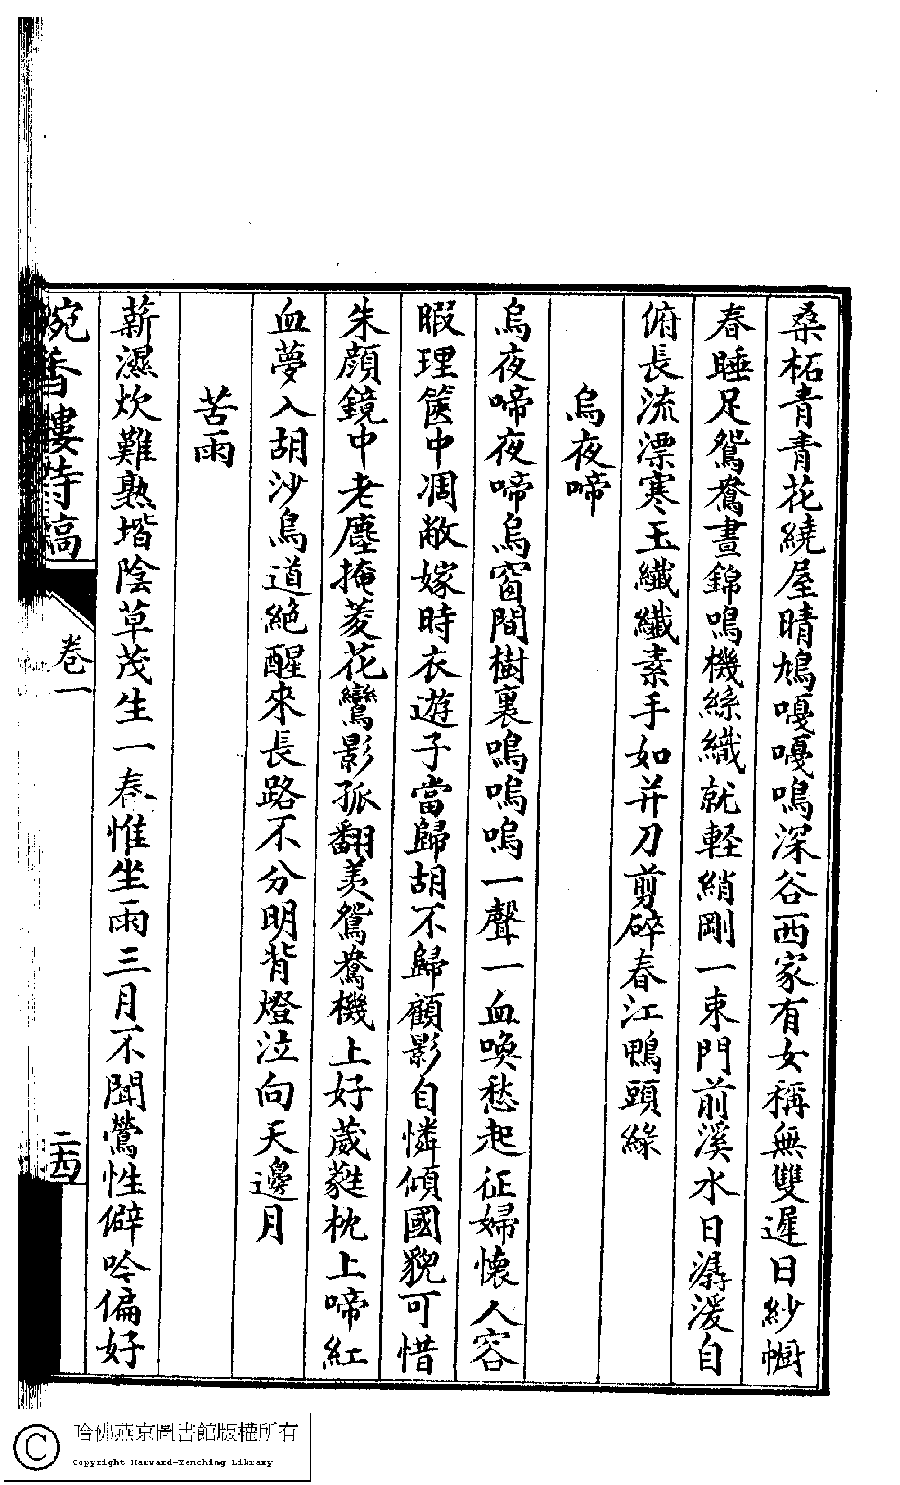 桑柘青青花繞屋晴鳩嗄嗄鳴深谷西家有女稱無雙遲日紗㡡
春睡足鴛鴦晝錦鳴機絲織就輕綃剛一束門前溪水日潺湲自
俯長流漂寒玉纖纖素手如并刀剪碎春江鴨頭綠
烏夜啼
烏夜啼夜啼烏窗間樹裏嗚嗚嗚一聲一血喚愁起征婦懷人容
暇理篋中凋敝嫁時衣遊子當歸胡不歸顧影自憐傾國貌可惜
朱顏鏡中老塵掩菱花鸞影孤翻羨鴛鴦機上好葳蕤枕上啼紅
血夢入胡沙烏道絕醒來長路不分明背燈泣向天邊月
苦雨
薪濕炊難熟堦陰草茂生一春惟坐雨三月不聞鶯性僻吟偏好
婉香樓詩稿
卷一
二四
哈佛燕京圖書館版權所有
Copyright Harvard-Yenching Library